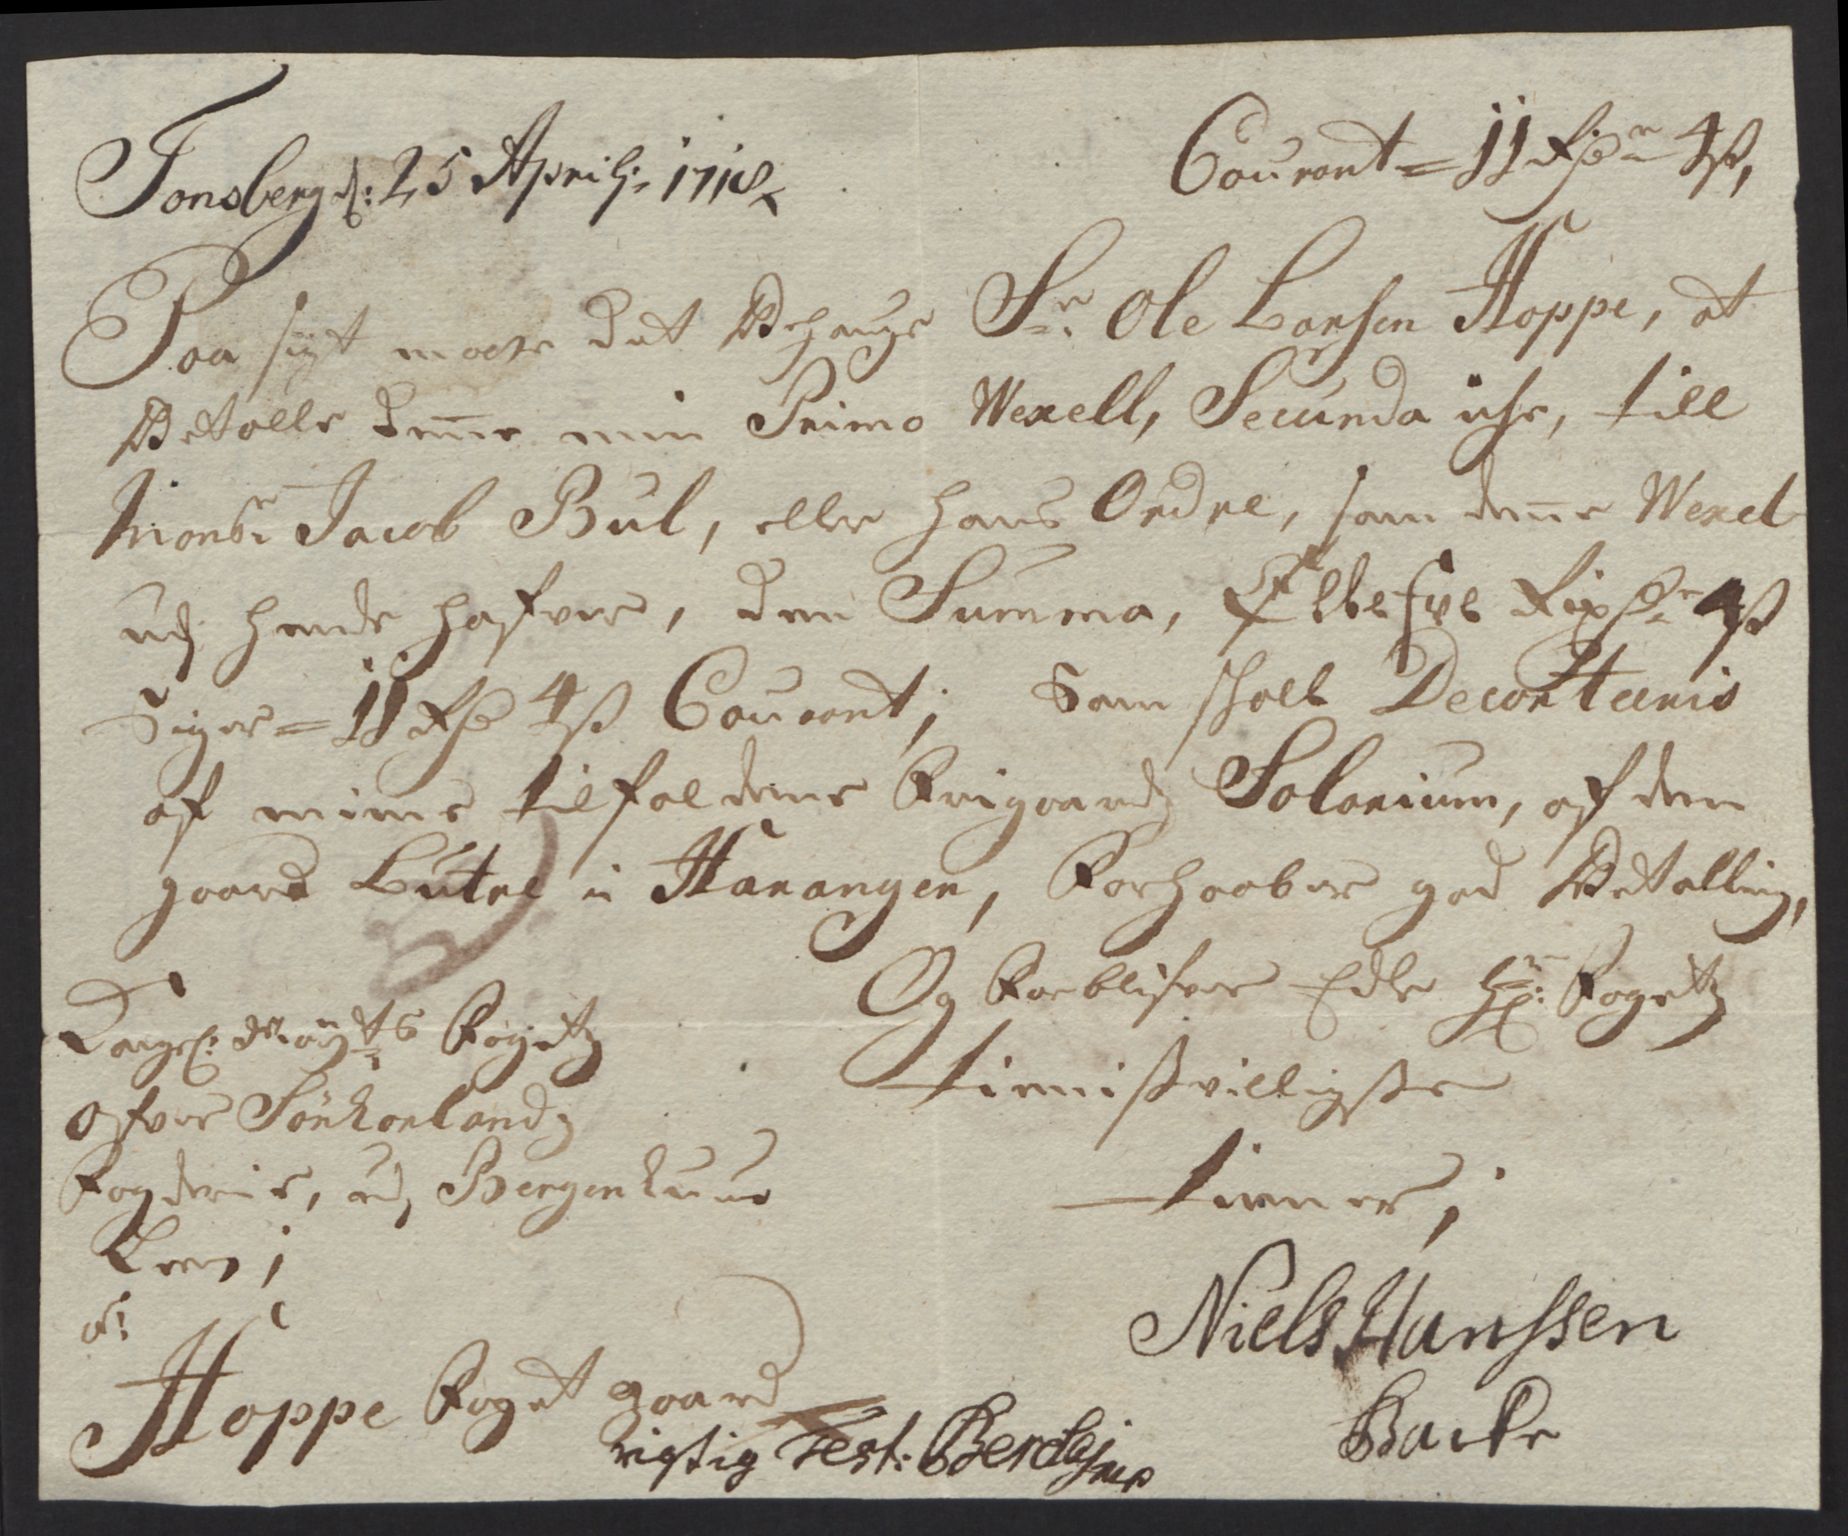 Tonsberg d: 25 Aprilj: 1718
Courant = 11 Rdr 4 ß,
Paa sigt maatte det Behage Sr. Ole Larsen Hoppe, at
Betalle denne min Primo Wexell, Secunda iche, till
Monsr. Jacob Bul, eller hans Ordre, som denne Wexel
udj hende hafver, den Summa, Ellefve Rixdr 4 ß
Siger = 11 Rd 4 ß Courant; Som skall Decorteris
af minne tilfaldene frigaardz Solarium, af den
gaard Lutne i Harangen, forhaaber god Betalling,
Og forblifver Edle Hr: Fogetz
tienistvilligste
tienner;
Niels Hanssen
Backe
Kongel: Mayts Fogetz
ofver Sønhorlandz
fogderie, udj Bergenhuus
Leen;
a:
Hoppe foget gaard
rigtig Test: